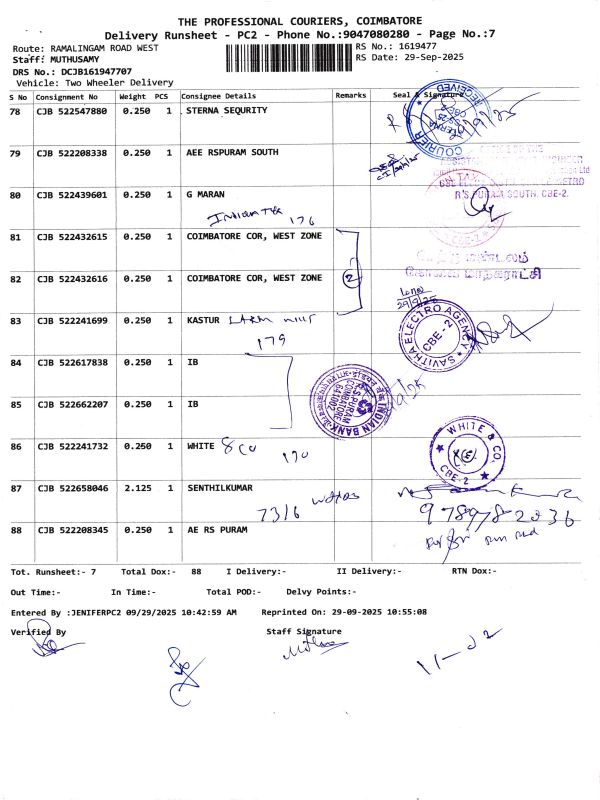 THE PROFESSIONAL COURIERS, COIMBATORE
Delivery Runsheet - PC2 - Phone No.:9047080280 - Page No.:7
Route: RAMALINGAM ROAD WEST
Staff: MUTHUSAMY
DRS No.: DCJB161947707
Vehicle: Two Wheeler Delivery
RS No.: 1619477
RS Date: 29-Sep-2025
S No Consignment No Weight PCS Consignee Details Remarks Seal & Signature
78 CJB 522547880 0.250 1 STERNA SEQURITY
COURIER RECEIVED
79 CJB 522208338 0.250 1 AEE RSPURAM SOUTH
R.S. PURAM, SOUTH, CBE-2.
80 CJB 522439601 0.250 1 G MARAN
176
CBE-2
81 CJB 522432615 0.250 1 COIMBATORE COR, WEST ZONE
82 CJB 522432616 0.250 1 COIMBATORE COR, WEST ZONE
2
29/9/25
83 CJB 522241699 0.250 1 KASTUR
179
SAVITHA ELECTRO AGENCY
CBE - 2
84 CJB 522617838 0.250 1 IB
85 CJB 522662207 0.250 1 IB
INDIAN BANK
R.S PURAM
COIMBATORE
641002
86 CJB 522241732 0.250 1 WHITE & CO
170
WHITE & CO.
CBE-2
87 CJB 522658046 2.125 1 SENTHILKUMAR
7316
97897 82036
88 CJB 522208345 0.250 1 AE RS PURAM
Tot. Runsheet:- 7 Total Dox:- 88 I Delivery:- II Delivery:- RTN Dox:-
Out Time:- In Time:- Total POD:- Delvy Points:-
Entered By :JENIFERPC2 09/29/2025 10:42:59 AM Reprinted On: 29-09-2025 10:55:08
Verified By Staff Signature
11-02